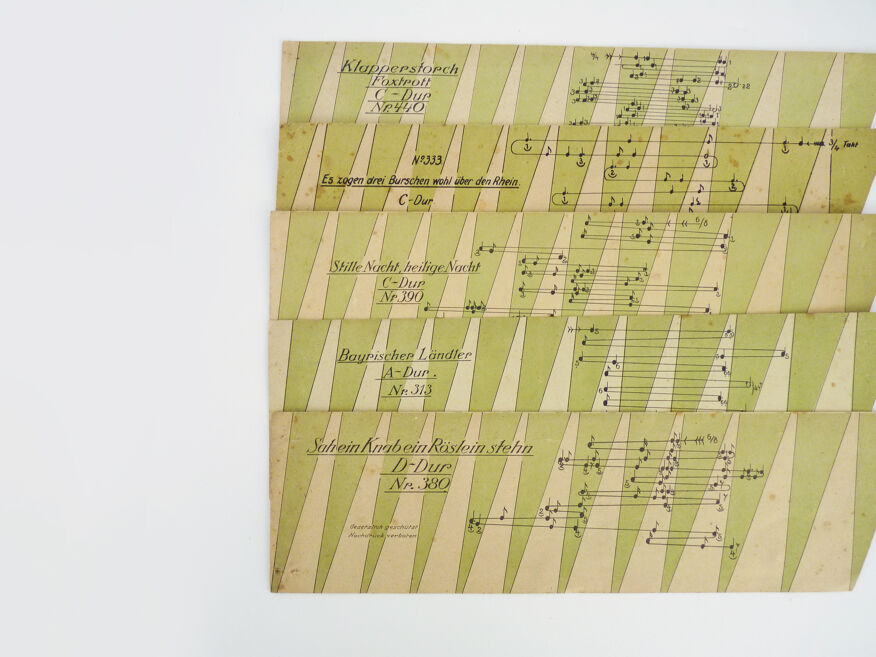 Klapperstorch
Foxtrott
C-Dur
Nr.440
4/4
Nº333
Es zogen drei Burschen wohl über den Rhein.
C-Dur
3/4 Takt
Stille Nacht, heilige Nacht
C-Dur
Nr.390
6/8
Bayrischer Ländler
A-Dur.
Nr.313
Sah ein Knab ein Röslein stehn
D-Dur
Nr. 380
6/8
Gesetzlich geschützt
Nachdruck verboten